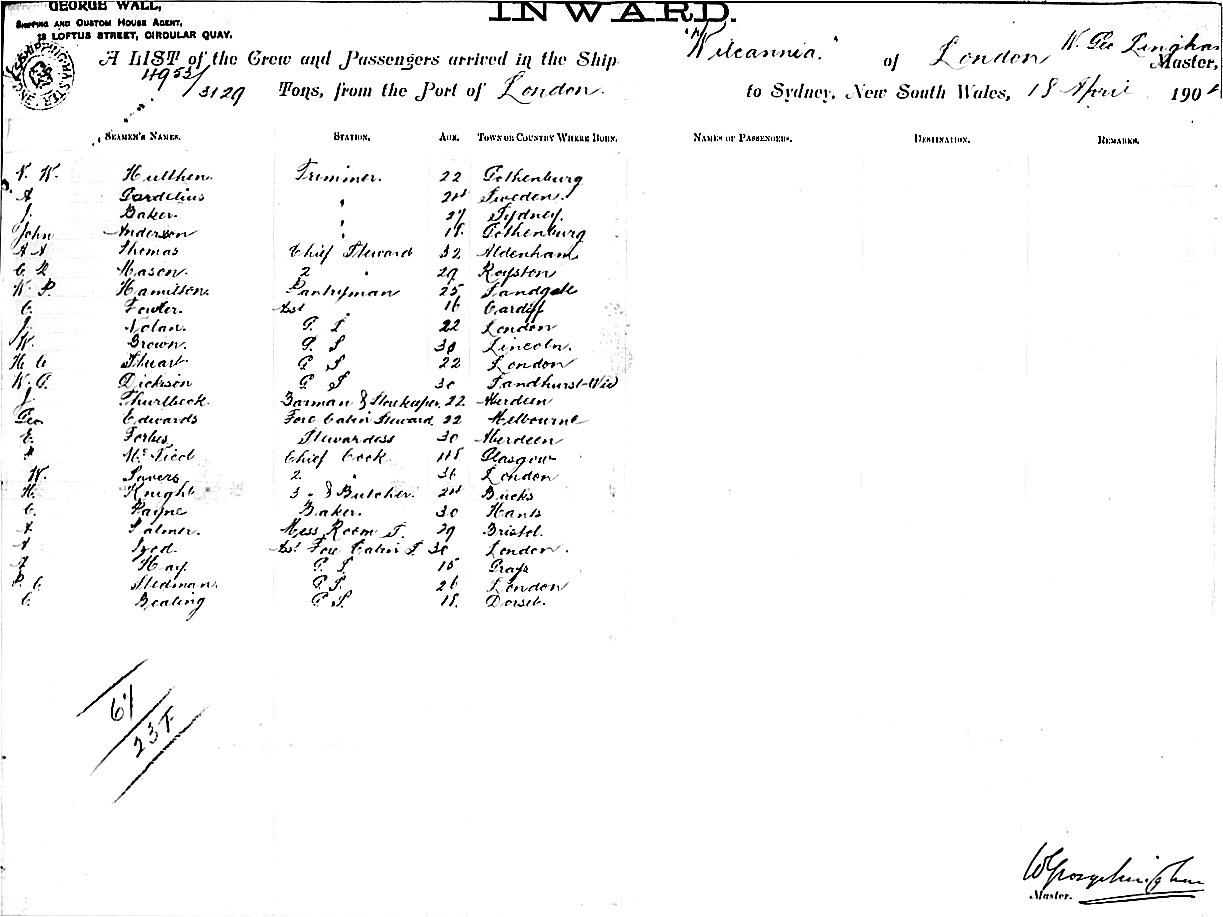 GEORGE WALL,
SHIPPING AND CUSTOM HOUSE AGENT,
LOFTUS STREET, CIRCULAR QUAY.
INWARD.
A LIST of the Crew and Passengers arrived in the Ship "Wilcannia." of London W. Geo Lingham Master,
4953/3129 Tons, from the Port of London. to Sydney, New South Wales, 18 April 190
SEAMEN'S NAMES. STATION. AGE. TOWN OR COUNTRY WHERE BORN. NAMES OF PASSENGERS. DESTINATION. REMARKS.
W. Hulthen. Trimmer. 22 Gothenburg
A Gardelius " Sweden.
J. Baker. " 27 Sydney.
John Anderson " 18. Gothenburg
A A Thomas Chief Steward 32 Aldenham
Mason. 2 " 29 Royston
W. P. Hamilton. Pantryman 25 Sandgate
C. Fowler. Asst " 16 Cardiff
J. Nolan. G. S 22 London
W. Brown. G. S 30 Lincoln.
H C Stuart G S 22 London
W. Dickson G S 30 Sandhurst-Vic
J. Thurlbeck. Barman & Storekeeper. 22 Aberdeen
Geo Edwards Fore Cabin Steward. 22 Melbourne
E. Forbes Stewardess 30 Aberdeen
McNicol Chief Cook 48 Glasgow
W. Savers 2 " 36 London
H. Knight 3 " & Butcher. Bucks
C. Payne Baker. 30 Hants
A Palmer. Mess Room S. 29 Bristol.
A Ast Fore Cabin S 30 London.
A Hay. G. S 15 Grays
P. C Stedman. G. S. 26 London
C. Beating G. S. 18. Dorset.
61
23 F
Master.